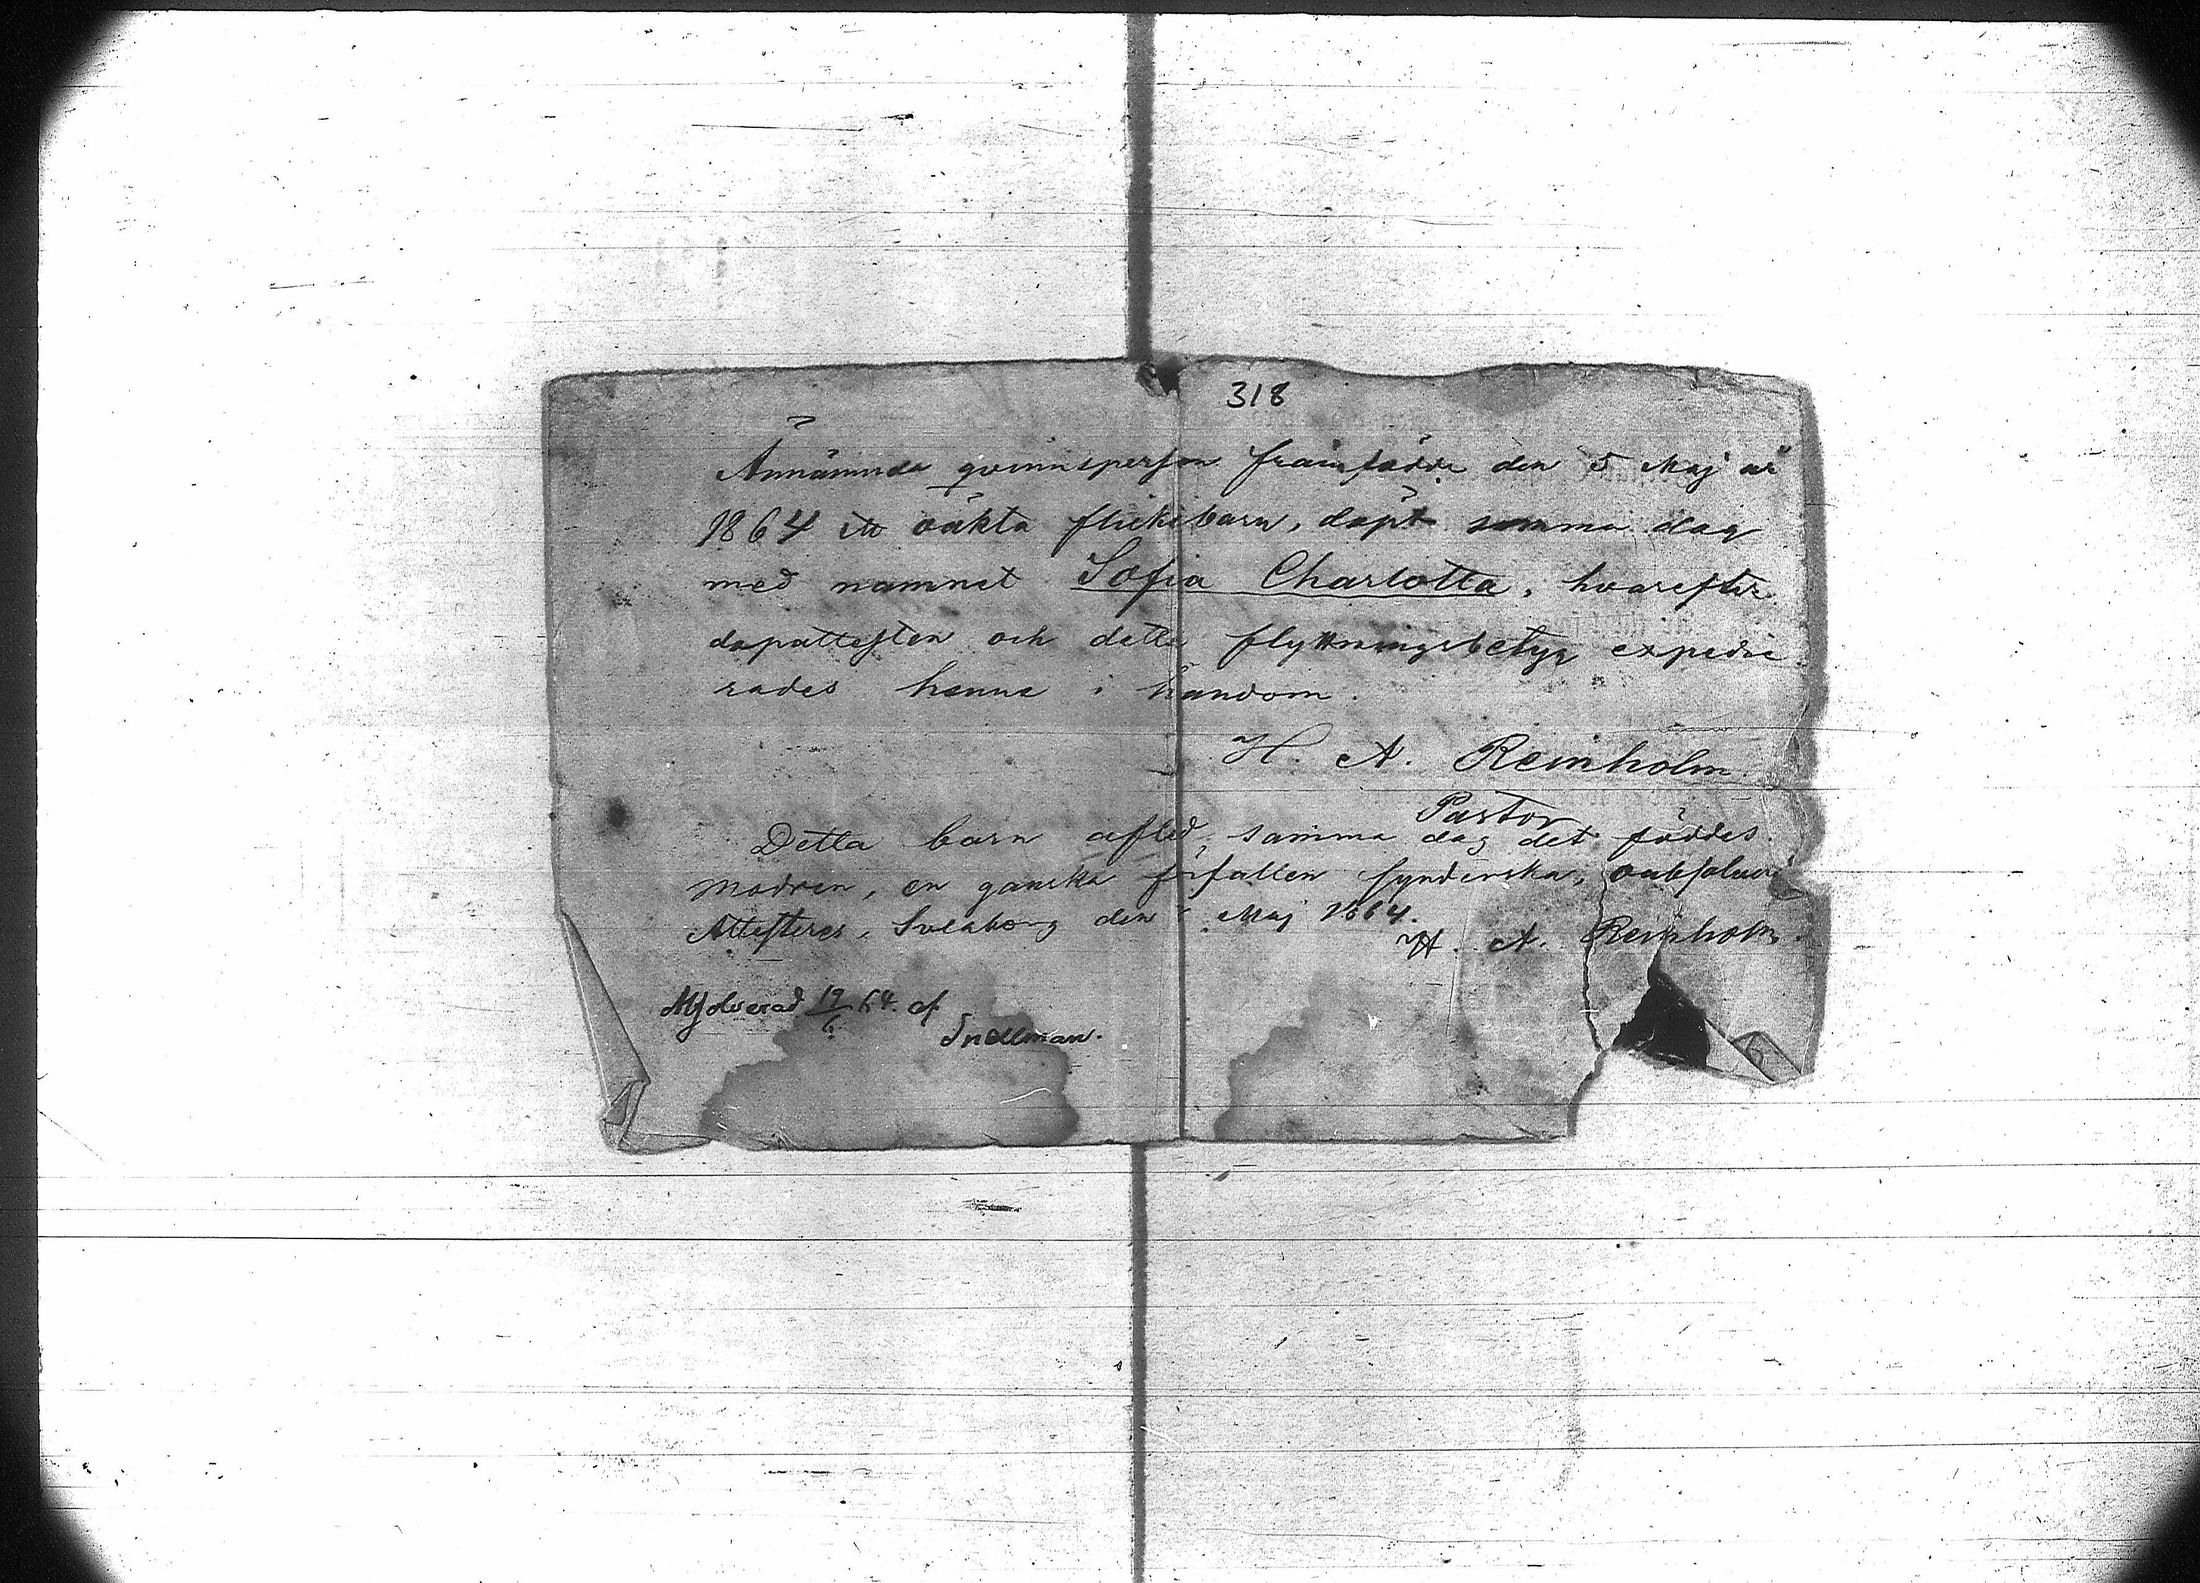 318
Annämnda qvinnsperson framfödde den 5 Maj år
1864 ett oäkta flickebarn, döpt samma dag
med namnet Sofia Charlotta, hvarefter
dopattesten och detta flyttningsbetyg expedie
rades henne i händom.
H. A. Reinholm.
Pastor
Detta barn afled samma dag det föddes.
Modren, en ganska förfallen synderska, oabsolverad
Attesteras, Sveaborg den Maj 1864.
H. A. Reinholm.
Absolverad 19/6 64. af
Snellman.